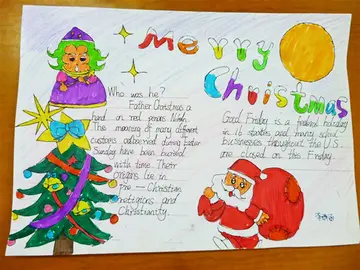 Merry
Christmas
Who was he?
Father Christmas a
hand on red penons North
The meaning of many different
customs patterned during Easter
Sunday have been buried
with time. Their
origins lie in
Pre-Christian
religions and
Christianity.
Good Friday is a federal holiday
in 12 states and many
businesses throughout the U.S.
are closed on this Friday.